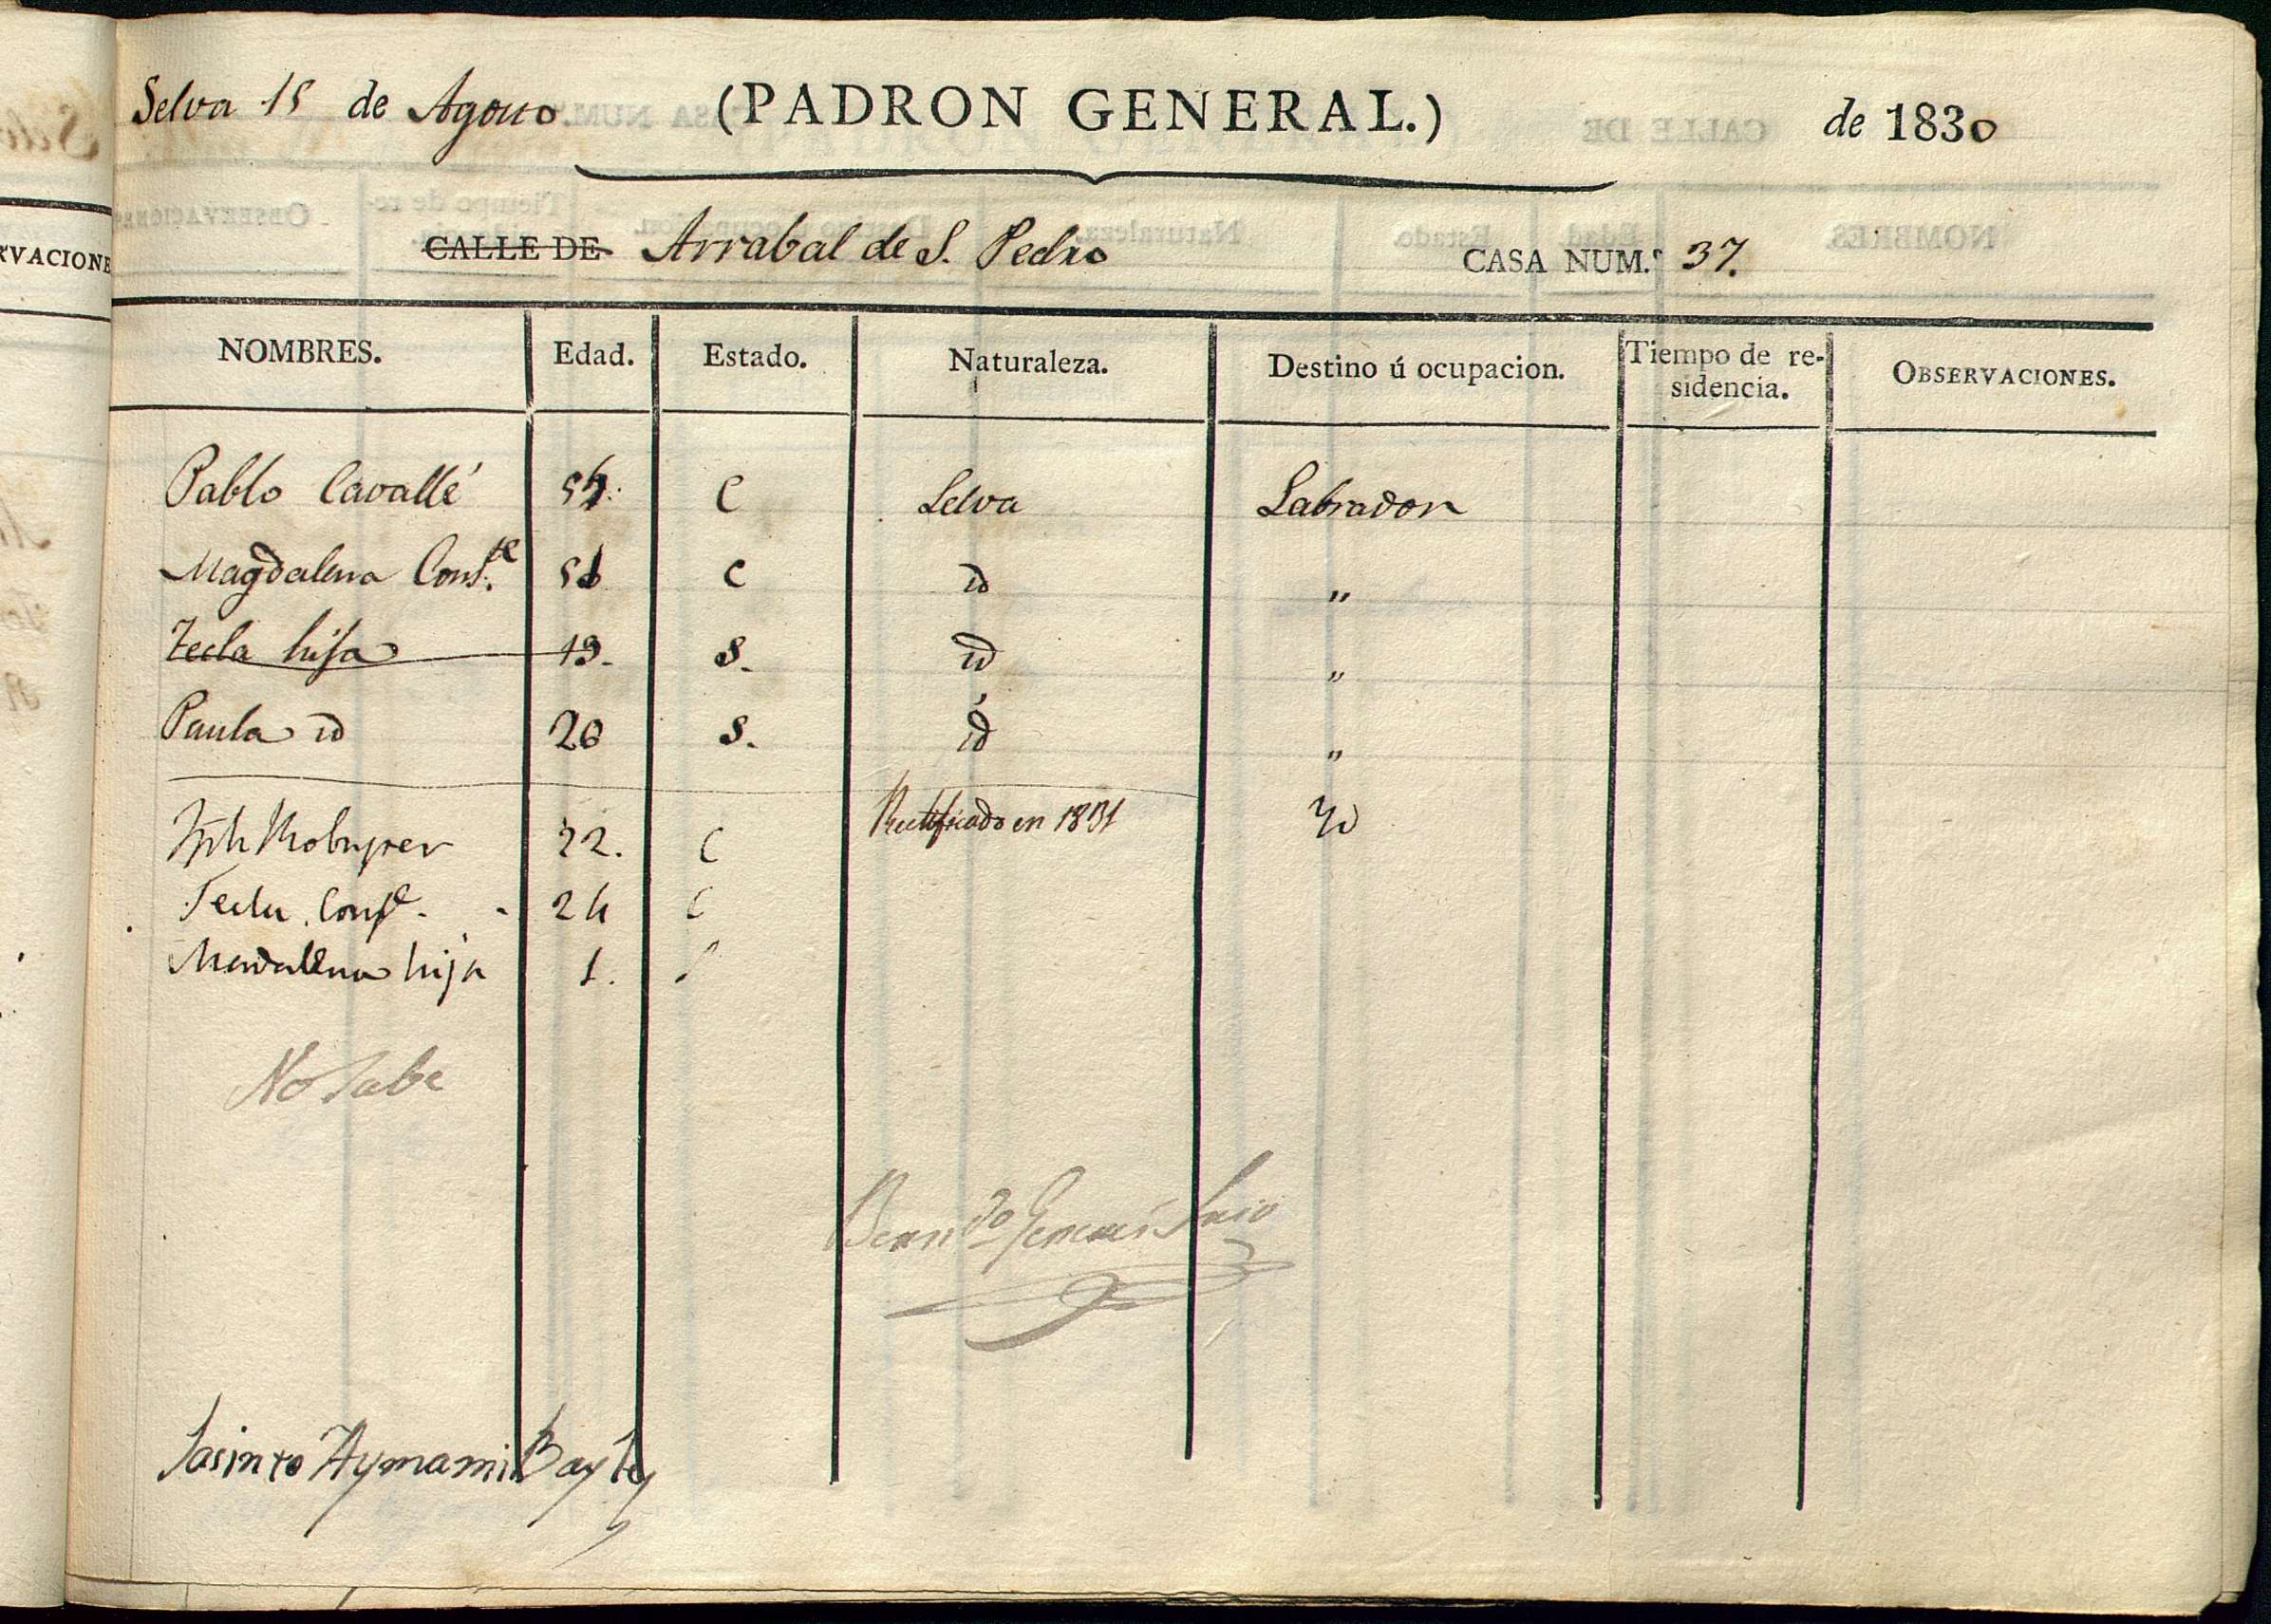 Selva 15 de Agosto (PADRON GENERAL.) de 1830
CALLE DE Arrabal de S. Pedro CASA NUM.º 37.
NOMBRES. Edad. Estado. Naturaleza. Destino ú ocupacion. Tiempo de re-
sidencia. OBSERVACIONES.
Pablo Cavallé C Selva Labrador
Magdalena Cons.te C id "
Tecla hija 19. S. id "
Paula id 20 S. id "
Rectificado en 1831 Id
22. C
Tecla Conste. 24 C
Madalena hija 1. S
No sabe
Jasinto Aymami Bayle
RVACIONE